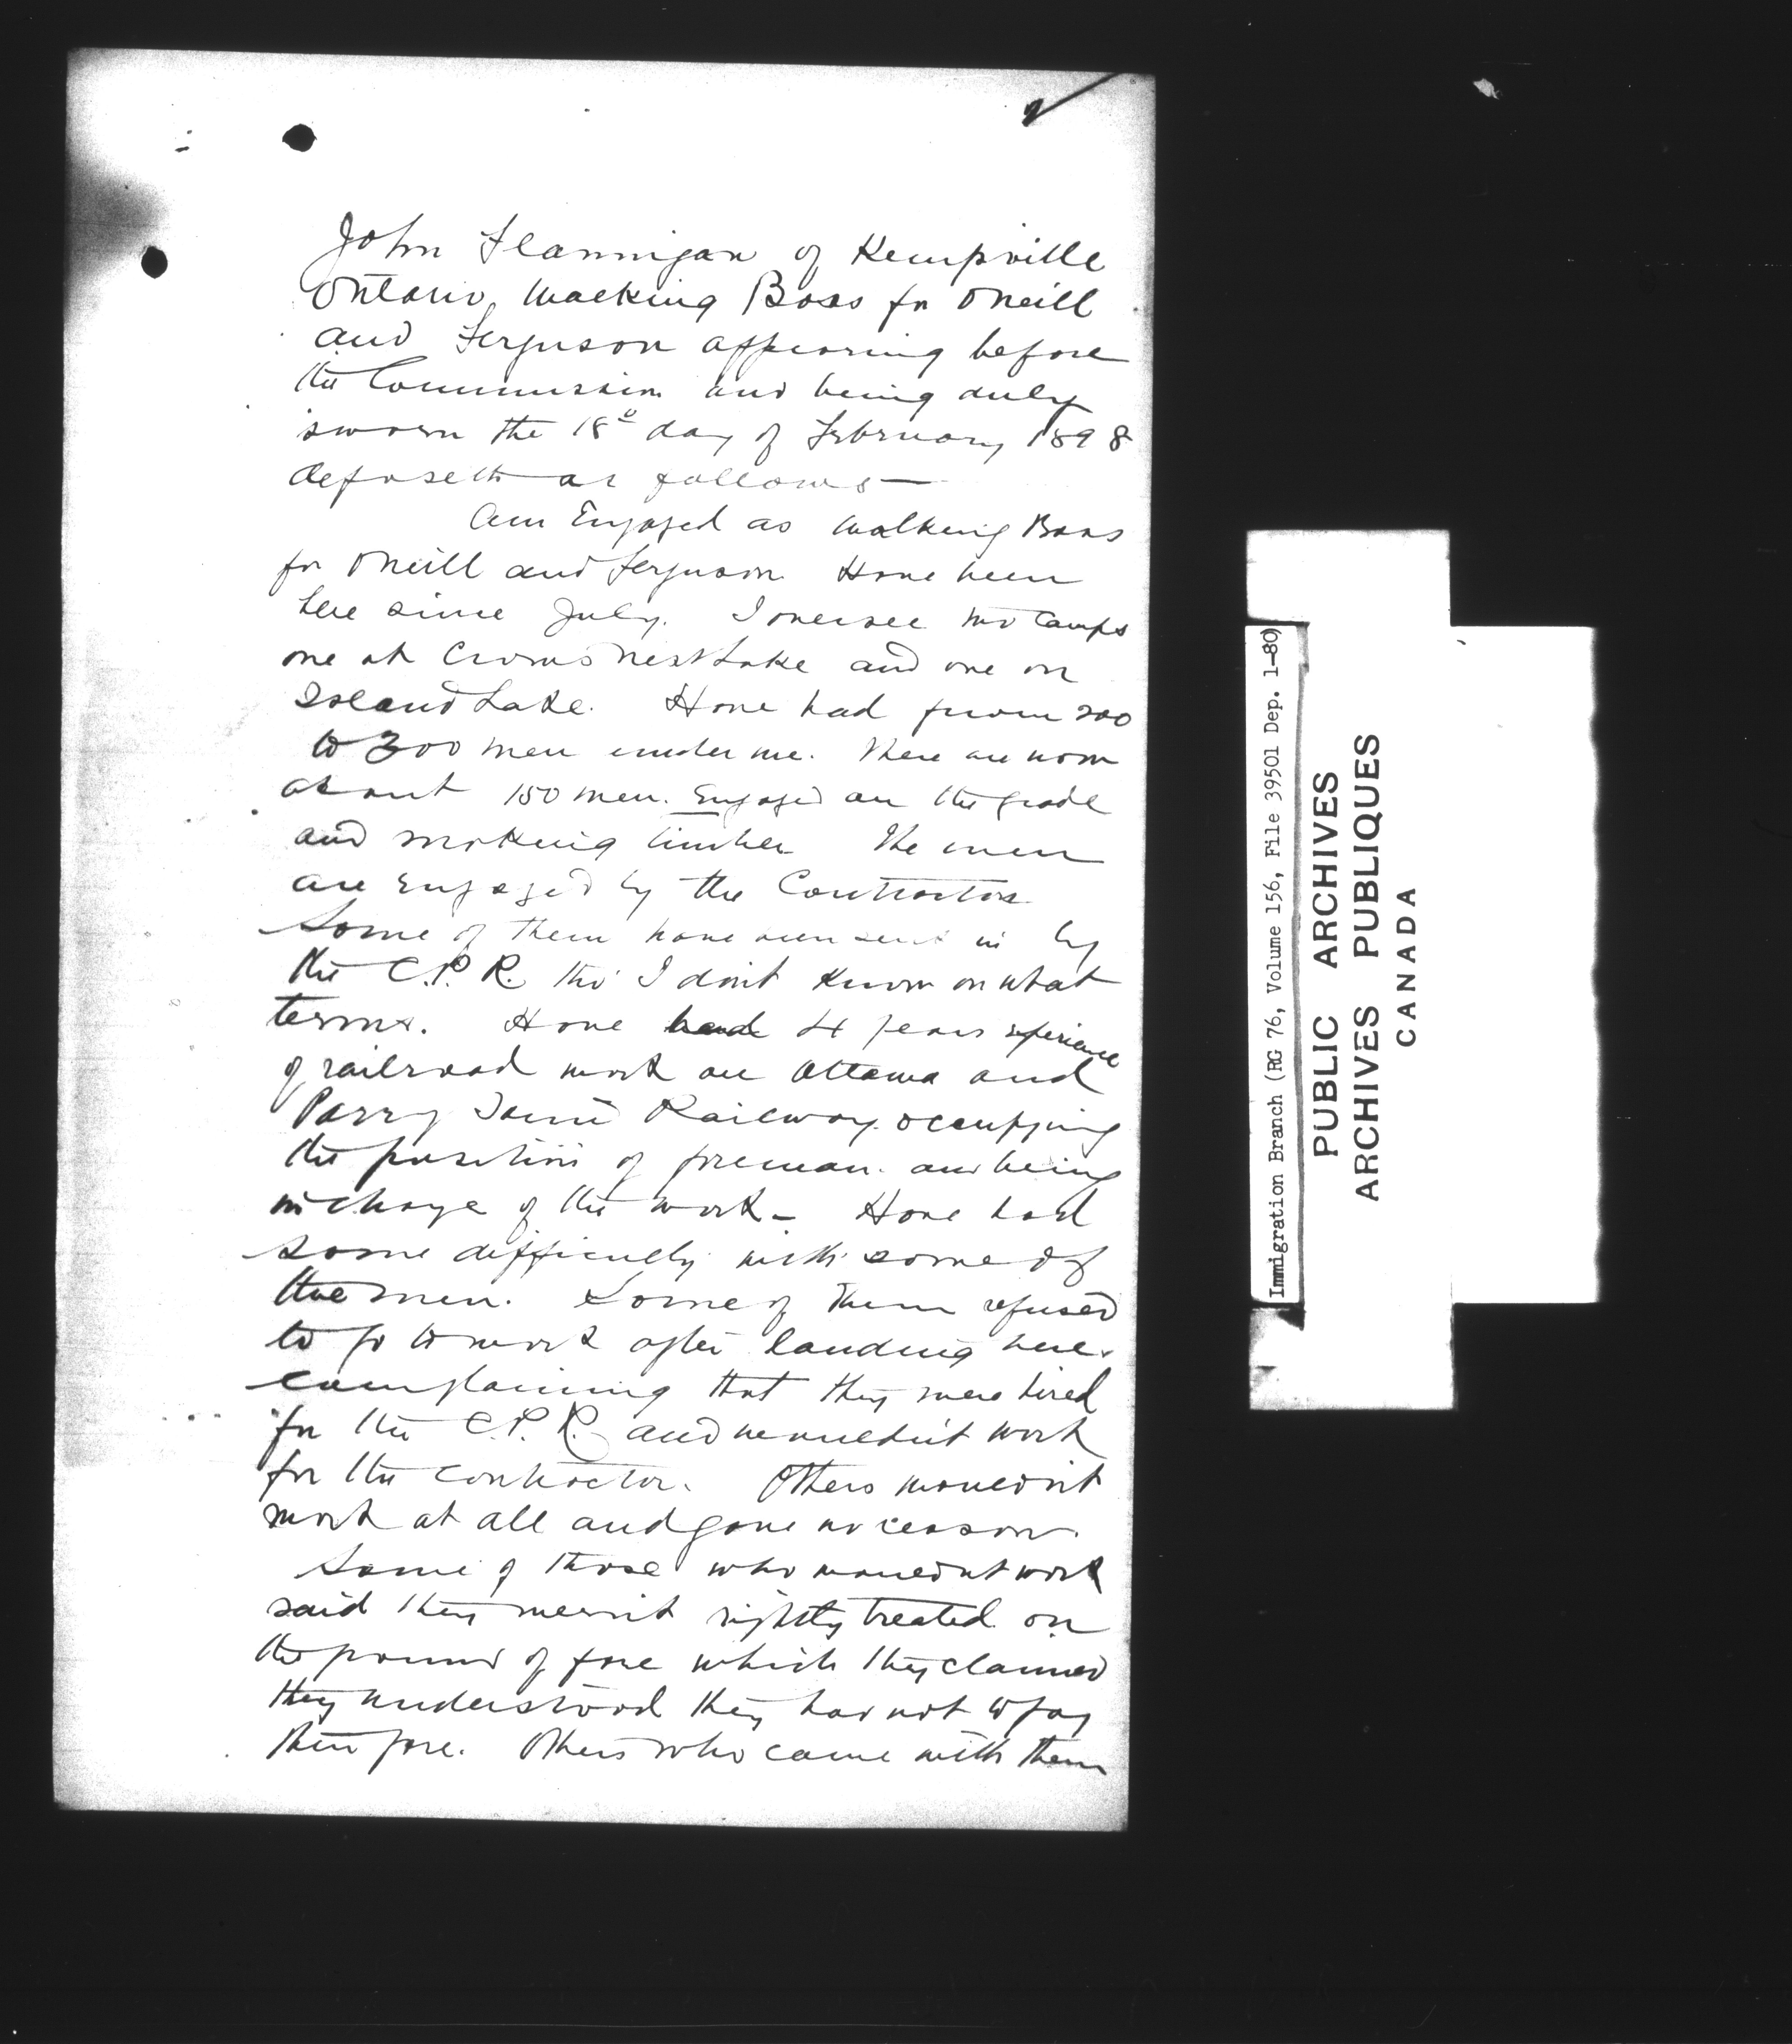 John Flannigan of Kempville
Ontario, Walking Boss for ONeill
and Ferguson appearing before
the Commission and being duly
sworn the 18th day of February 1898
deposeth as follows—
Am Engaged as Walking Boss
for ONeill and Ferguson Have been
here since July. I oversee two Camps
one at Crows Nest Lake and one on
Island Lake. Have had from 200
to 300 men under me. There are now
about 150 men. Engaged on the grade
and making timber The men
are engaged by the Contractors
Some of them have been sent in by
the C.P.R. tho' I don't know on what
terms. Have had 4 years experience
of railroad work on Ottawa and
Parry Sound Railway occupying
the position of foreman and being
in charge of the work — Have had
some difficulty with some of
the men. Some of them refused
to go to work after landing here.
complaining that they were hired
for the C.P.R. and wouldn't work
for the contractor. Others wouldn't
work at all and gave no reason.
Some of those who wouldn't work
said they weren't rightly treated on
the ground of fare which they claimed
they understood they had not to pay
their fare. Others who came with them
Immigration Branch (RG 76, Volume 156, File 39501 Dep. 1-80)
PUBLIC ARCHIVES
ARCHIVES PUBLIQUES
CANADA